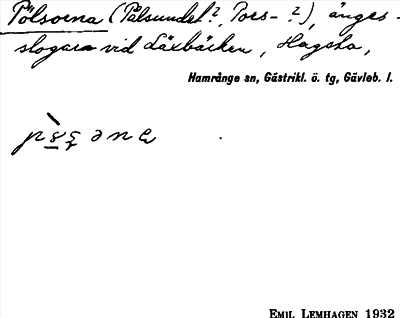 Pölsorna (Pålsundet?, Pors- ?), änges-
slogara vid Laxbäcken, Hagsta,
Hamrånge sn, Gästrikl. ö. tg, Gävleb. l.
EMIL LEMHAGEN 1932